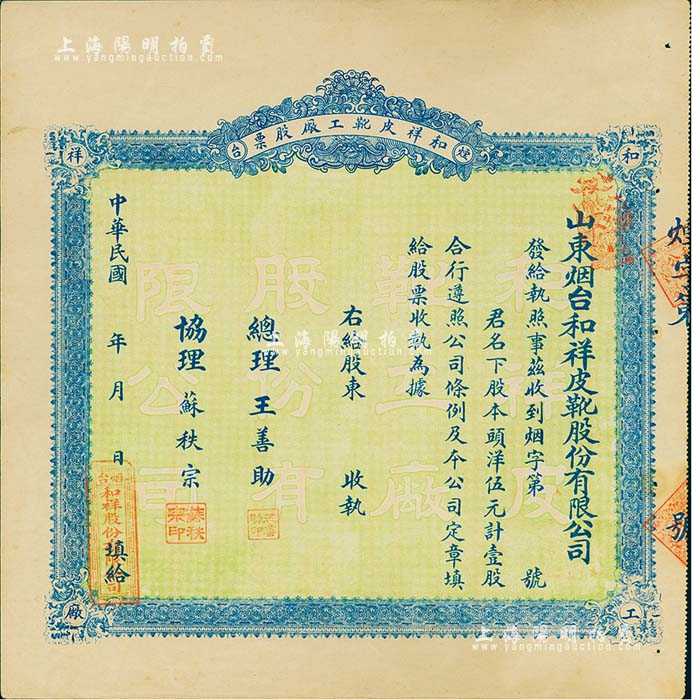 上海陽明拍賣
www.yangmingauction.com
烟台和祥皮靴工廠股票
和
祥
工
廠
山東烟台和祥皮靴股份有限公司
發給執照事茲收到烟字第 號
君名下股本頭洋伍元計壹股
合行遵照公司條例及本公司定章填
給股票收執為據
右給股東 收執
總理 王善助
協理 蘇秩宗
蘇秩宗印
中華民國 年 月 日 填給
烟台和祥股份有限公司
和祥皮
靴工廠
股份有
限公司
煙字第 號
上海陽明拍賣
www.yangmingauction.com
上海陽明拍賣
www.yangmingauction.com